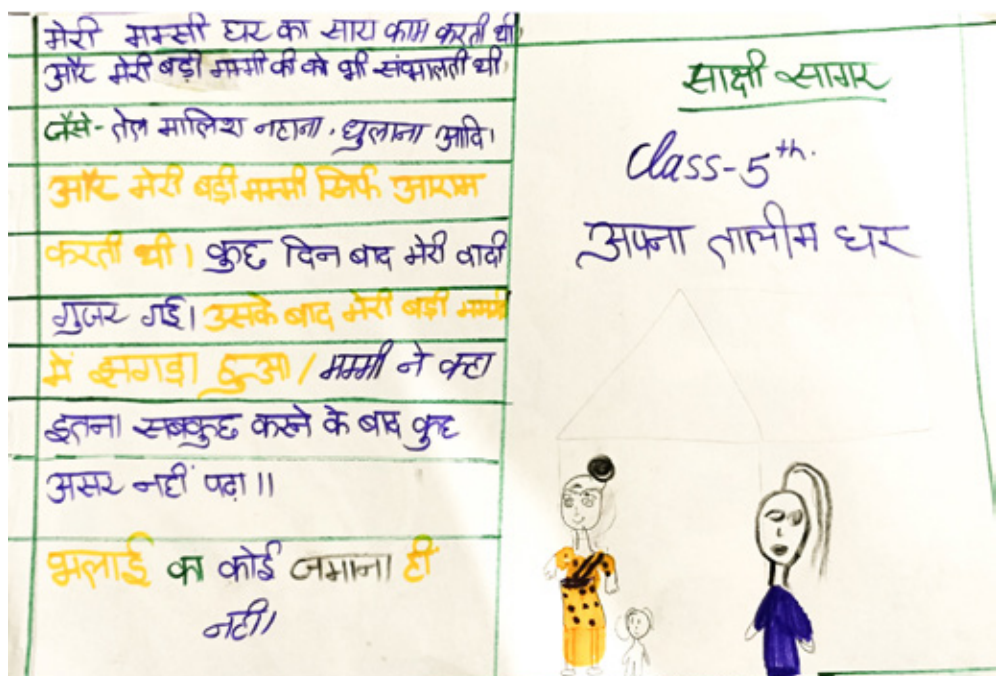 मेरी मम्मी घर का सारा काम करती थी
और मेरी बड़ी मम्मी की को भी संभालती थी
जैसे- तेल मालिश नहाना, धुलाना आदि।
और मेरी बड़ी मम्मी सिर्फ आराम
करती थी। कुछ दिन बाद मेरी दादी
गुजर गई। उसके बाद मेरी बड़ी मम्मी
में झगड़ा हुआ/मम्मी ने कहा
इतना सबकुछ करने के बाद कुछ
असर नहीं पढ़ा।।
भलाई का कोई जमाना ही
नही।
साक्षी सागर
Class-5th.
अपना तालीम घर